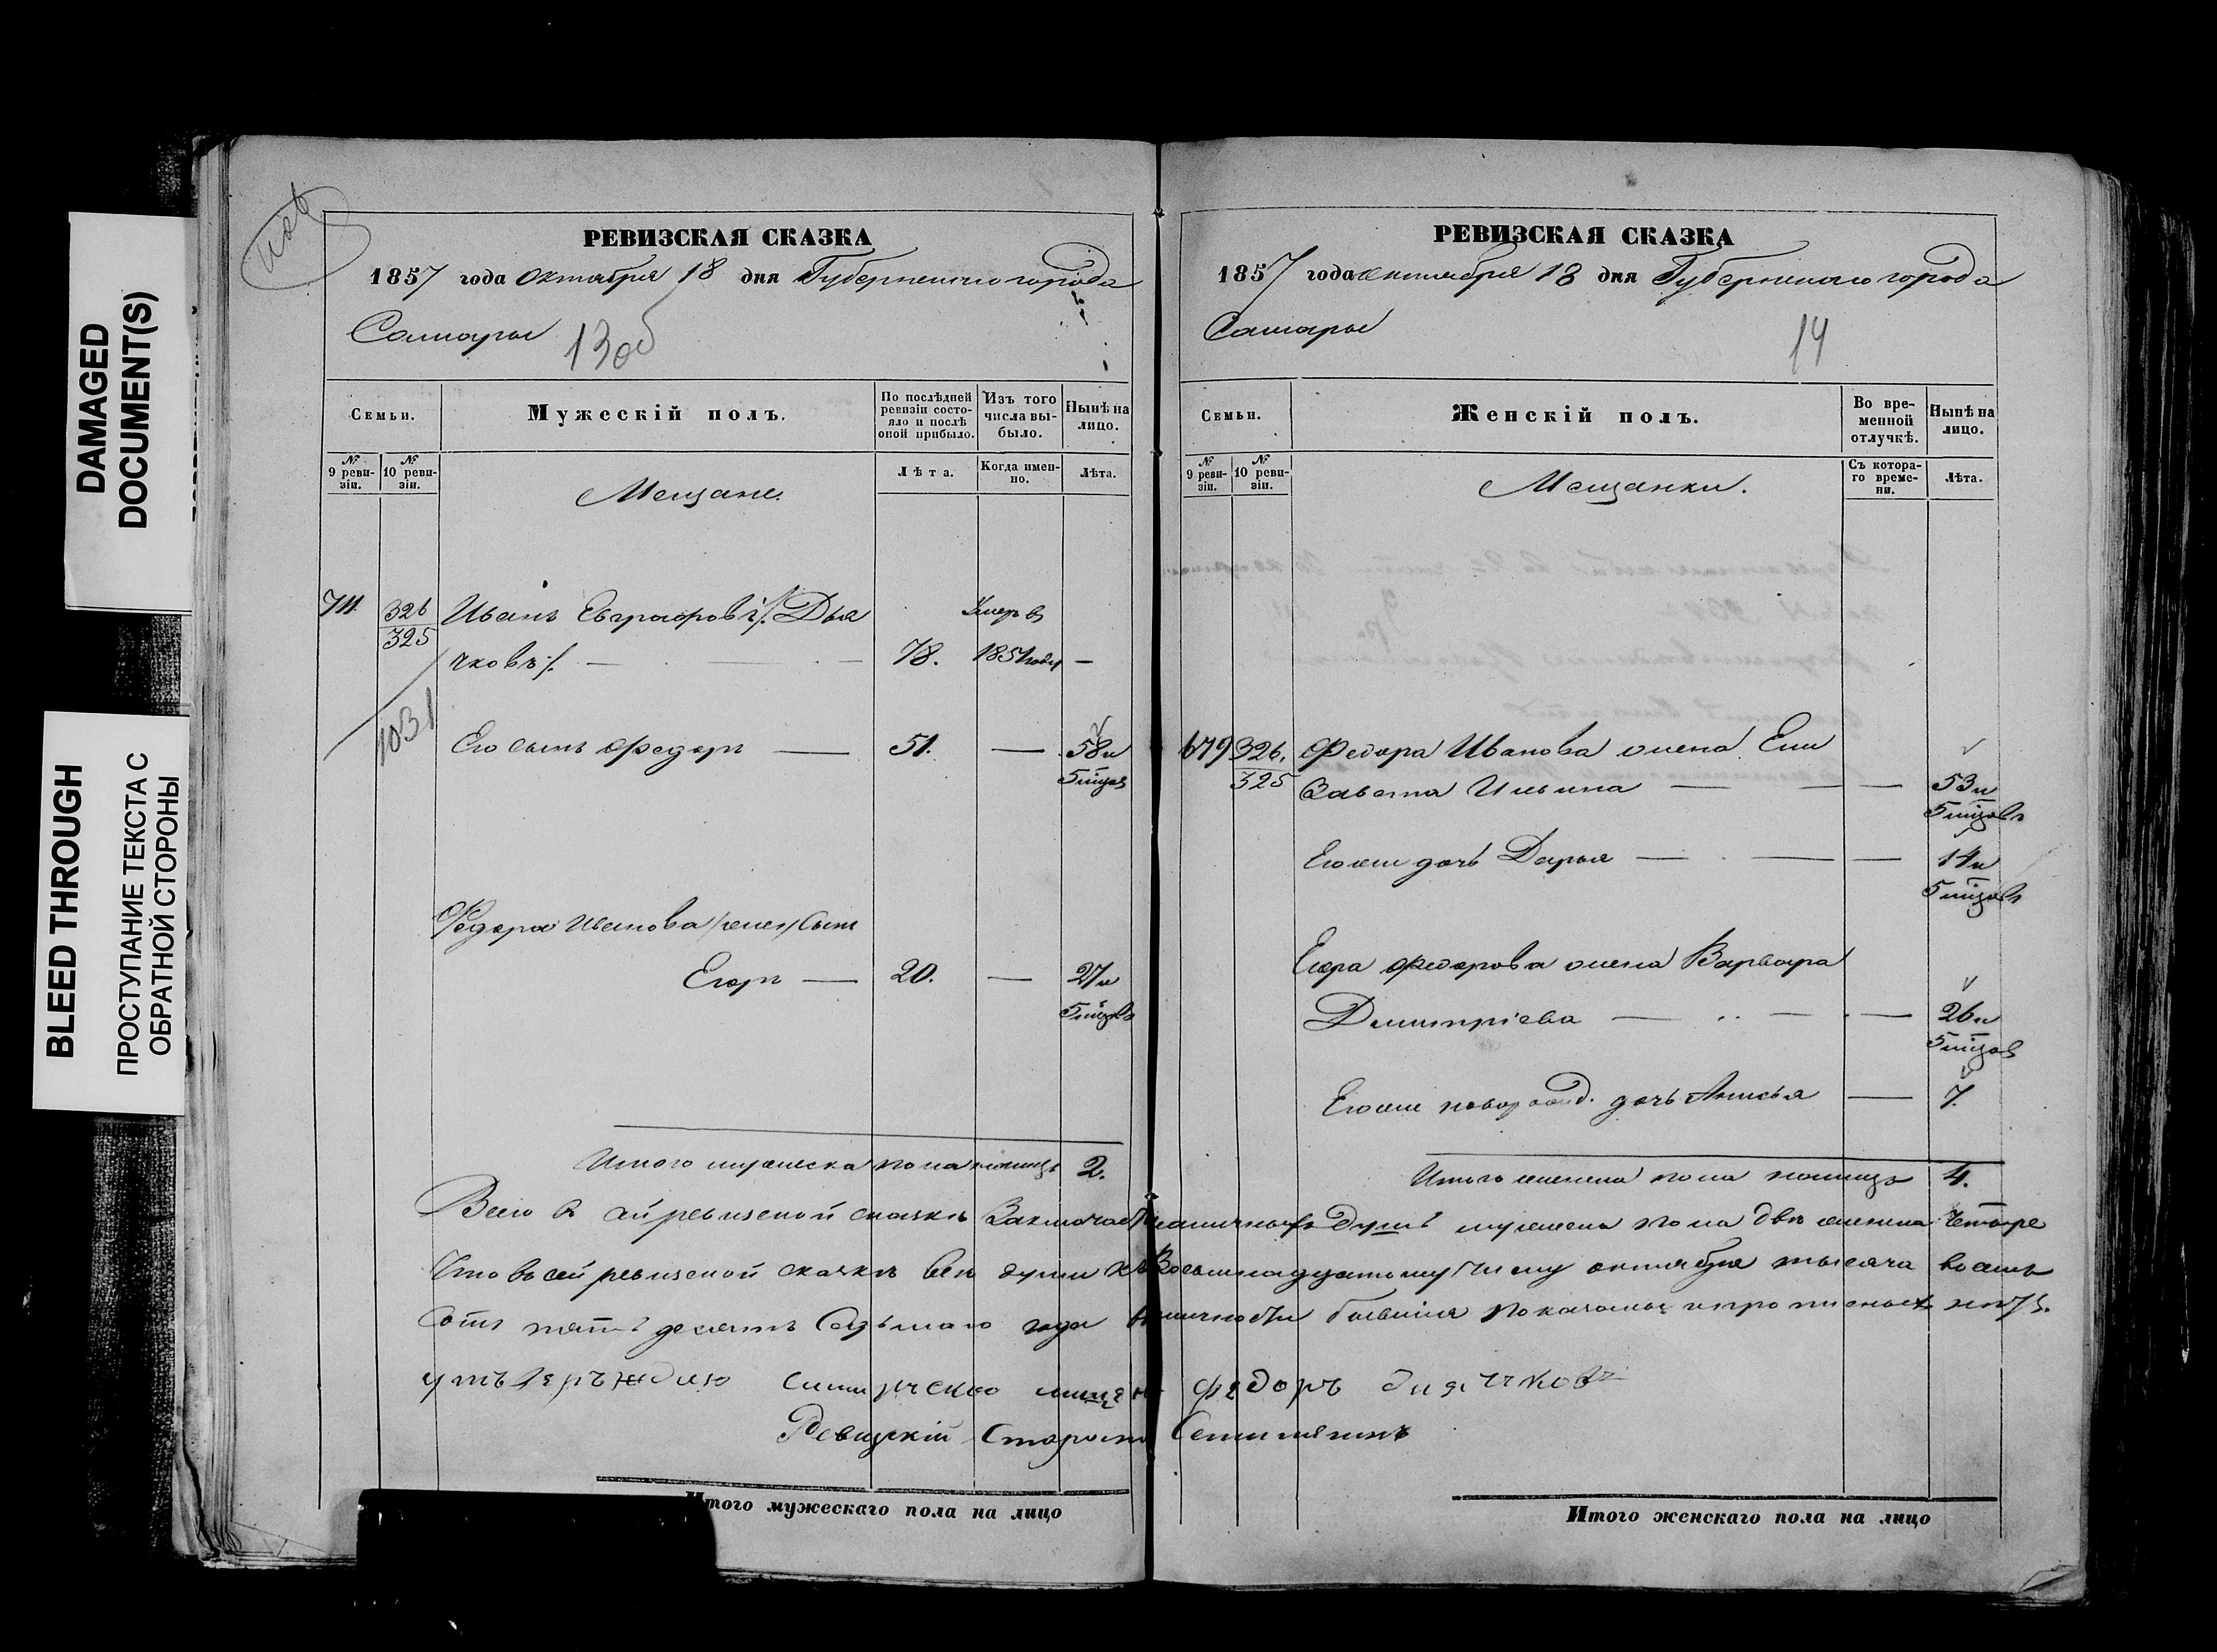 DAMAGED
DOCUMENT(S)
BLEED THROUGH
ПРОСТУПАНИЕ ТЕКСТА С
ОБРАТНОЙ СТОРОНЫ
РЕВИЗСКАЯ СКАЗКА
1857 года октября 18 дня Губернскаго города
Самары
13об
Семьи.
Мужескій полъ.
По послѣдней ревизіи состояло и послѣ оной прибыло.
Изъ того числа выбыло.
Нынѣ на лицо.
№ 9 ревизіи.
№ 10 ревизіи.
Мещане.
Лѣта.
Когда именно.
Лѣта.
711 326 Иванъ Евграфовъ /: Дья Умеръ въ
325 чковъ :/. — 78. 1851 году —
1031
Его сынъ Федоръ — 51. — 58 и
5 мцов
Федора Иванова сынъ
Егоръ — 20. — 27 и
5 мцовъ
Итого мужеска пола налицо 2.
РЕВИЗСКАЯ СКАЗКА
1857 года октября 18 дня Губернскаго города
Самары
14
Семьи.
Женскій полъ.
Во временной отлучкѣ.
Нынѣ на лицо.
№ 9 ревизіи.
№ 10 ревизіи.
Мещанки.
Съ котораго времени.
Лѣта.
679 326. Федора Иванова жена Ели
325 завета Ильина — — 53 и
5 мцовъ
Его же дочь Дарья — — 14 и
5 мцовъ
Егора Федорова жена Варвара
Дмитріева — — 26 и
5 мцов
Его же новорожд. дочь Анисья — 7.
Итого женска пола налицо 4.
Всего в сей ревизской сказкѣ заключается наличныхъ душъ мужеска пола двѣ женска четыре
Что въ сей ревизской сказкѣ всѣ души къ восьмнадцатому числу октября тысяча восемь
сотъ пятьдесятъ седьмаго года в наличности бывшія показаны и прописныхъ нѣтъ.
утъверъждаю мещ Федоръ диячковъ
Ревизскій Староста
Итого мужескаго пола на лицо
Итого женскаго пола на лицо